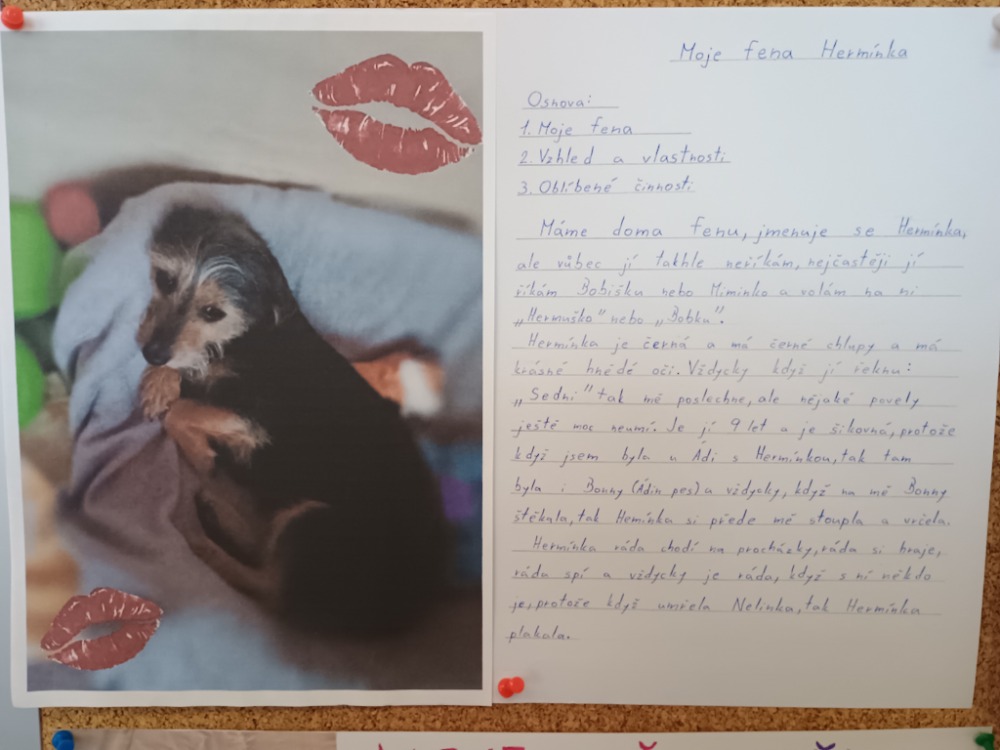 Moje fena Hermínka
Osnova:
1. Moje fena
2. Vzhled a vlastnosti
3. Oblíbené činnosti
Máme doma fenu, jmenuje se Hermínka,
ale vůbec jí takhle neříkám, nejčastěji jí
říkám Bobišku nebo Miminko a volám na ni
„Hermuško" nebo „Bobku".
Hermínka je černá a má černé chlupy a má
krásné hnědé oči. Vždycky když jí řeknu:
„Sedni" tak mě poslechne, ale nějaké povely
ještě moc neumí. Je jí 9 let a je šikovná, protože
když jsem byla u Ádi s Hermínkou, tak tam
byla i Bonny (Ádin pes) a vždycky, když na mě Bonny
štěkala, tak Hemínka si přede mě stoupla a vrčela.
Hermínka ráda chodí na procházky, ráda si hraje,
ráda spí a vždycky je ráda, když s ní někdo
je, protože když umřela Nelinka, tak Hermínka
plakala.